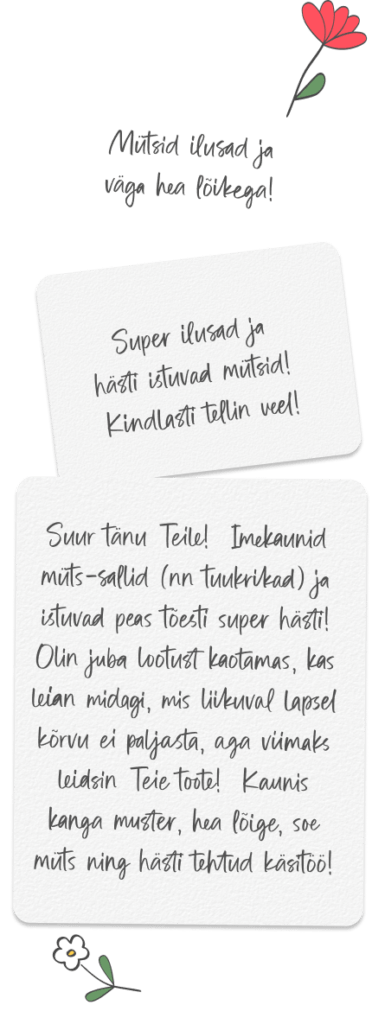 Mütsid ilusad ja
väga hea lõikega!
Super ilusad ja
hästi istuvad mütsid!
Kindlasti tellin veel!
Suur tänu Teile! Imekaunid
müts-sallid (nn tuukrikad) ja
istuvad peas tõesti super hästi!
Olin juba lootust kaotamas, kas
leian midagi, mis liikuval lapsel
kõrvu ei paljasta, aga viimaks
leidsin Teie toote! Kaunis
kanga muster, hea lõige, soe
müts ning hästi tehtud käsitöö!